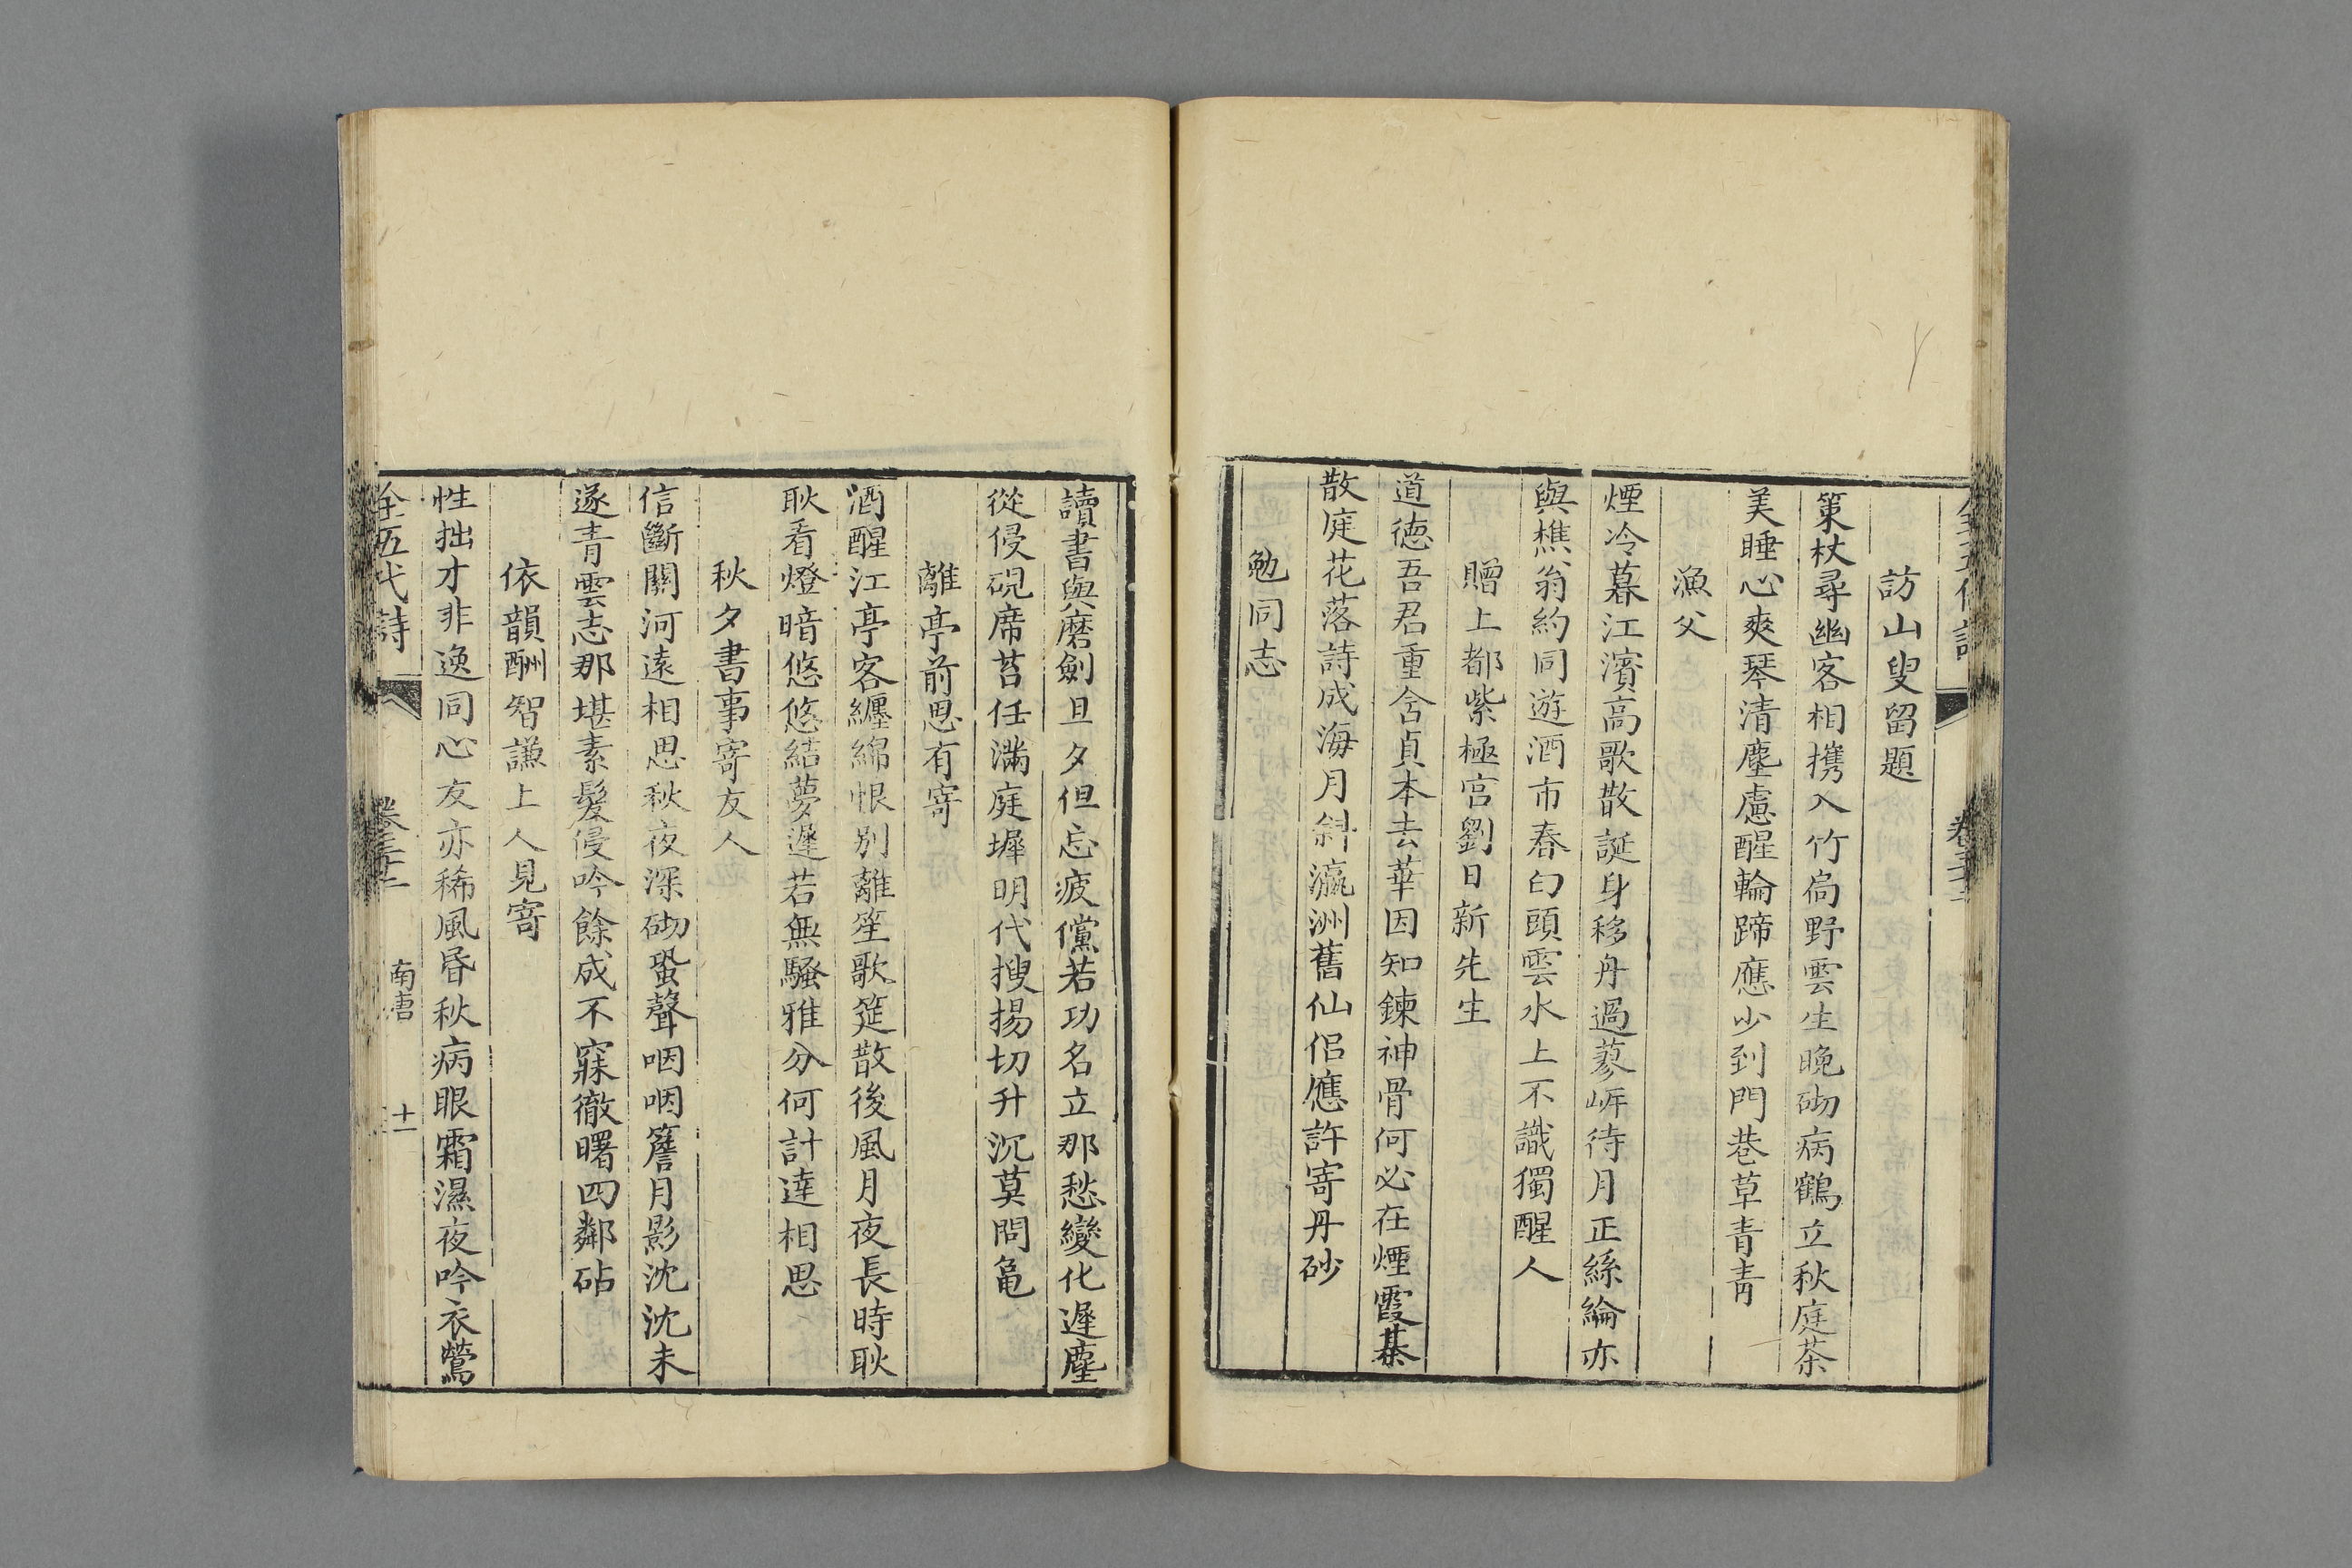 訪山叟留題
策杖尋幽客相攜入竹扃野雲生晚砌病鶴立秋庭茶
美睡心爽琴清塵慮醒輪蹄應少到門巷草青青
漁父
煙冷暮江濱高歌散誕身移舟過蓼岸待月正絲綸亦
與樵翁約同遊酒市春白頭雲水上不識獨醒人
贈上都紫極宮劉日新先生
道德吾君重含貞本去華因知鍊神骨何必在煙霞棊
散庭花落詩成海月斜瀛洲舊仙侶應許寄丹砂
勉同志
讀書與磨劍旦夕但忘疲儻若功名立那愁變化遲塵
從侵硯席苔任滿庭墀明代搜揚切升沉莫問龜
離亭前思有寄
酒醒江亭客纏綿恨別離笙歌筵散後風月夜長時耿
耿看燈暗悠悠結夢遲若無騷雅分何計達相思
秋夕書事寄友人
信斷關河遠相思秋夜深砌蛩聲咽咽簷月影沈沈未
遂青雲志那堪素髮侵吟餘成不寐徹曙四鄰砧
依韻酬智謙上人見寄
性拙才非逸同心友亦稀風昏秋病眼霜濕夜吟衣鶯
全五代詩 卷三十一 南唐 十一